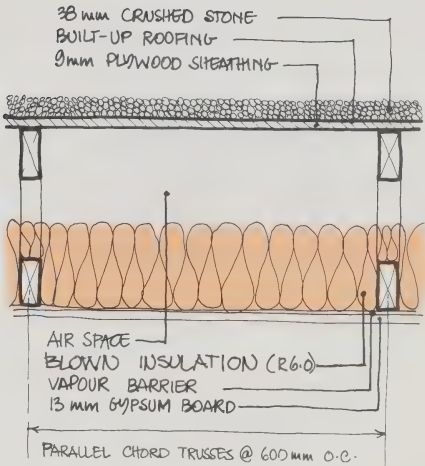 38 mm CRUSHED STONE
BUILT-UP ROOFING
9mm PLYWOOD SHEATHING
AIR SPACE
BLOWN INSULATION (R6.0)
VAPOUR BARRIER
13 mm GYPSUM BOARD
PARALLEL CHORD TRUSSES @ 600mm O.C.